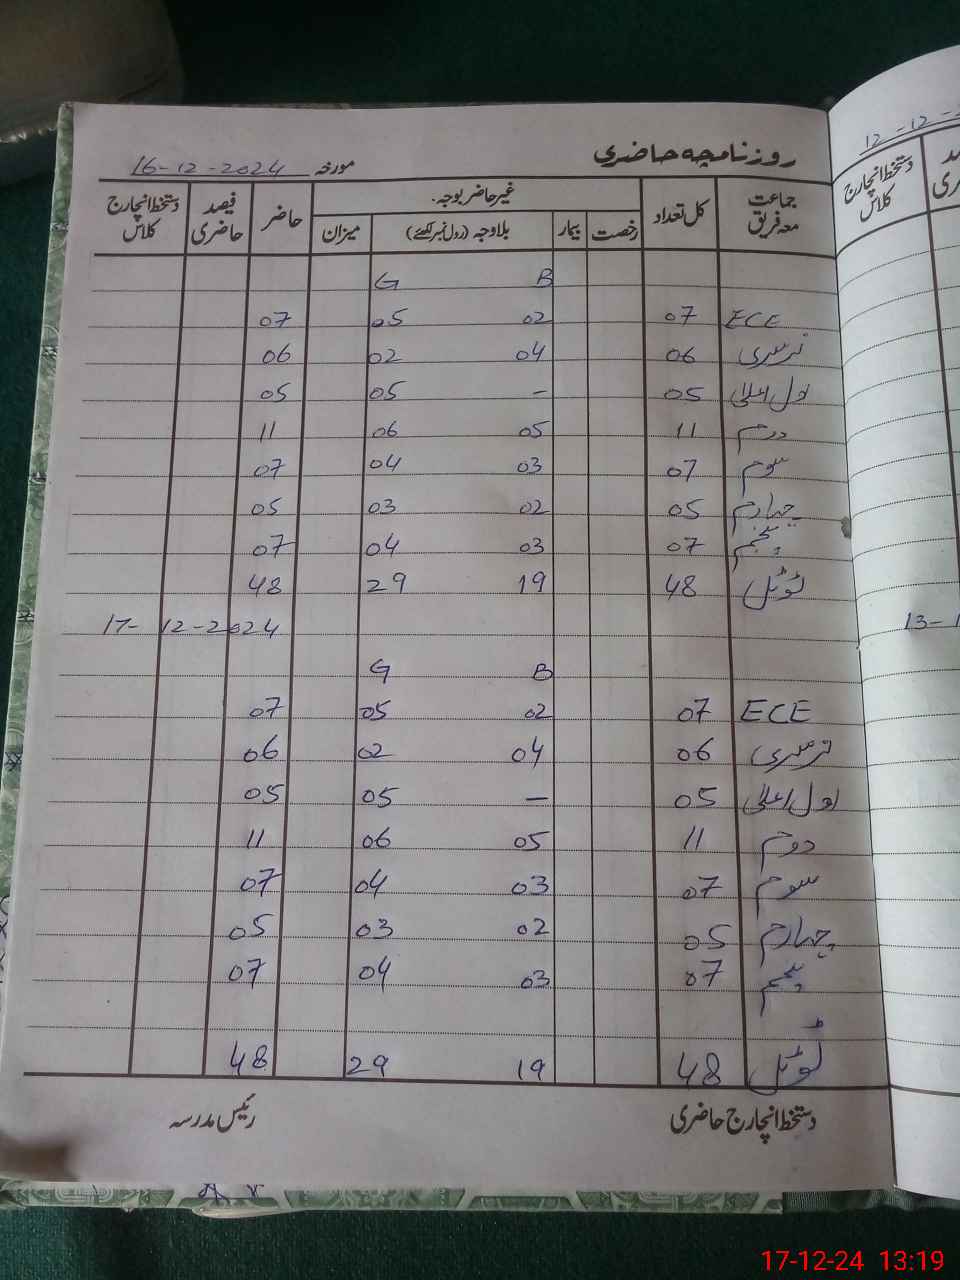 روزنامچہ حاضری مورخہ 16-12-2024
جماعت معہ فریق کل تعداد غیر حاضر بوجہ۔ حاضر فیصد حاضری دستخط انچارج کلاس
رخصت بیمار بلاوجہ (رول نمبر لکھئے) میزان
B G
ECE 07 02 05 07
نرسری 06 04 02 06
اول اعلیٰ 05 - 05 05
دوم 11 05 06 11
سوم 07 03 04 07
چہارم 05 02 03 05
پنجم 07 03 04 07
ٹوٹل 48 19 29 48
17-12-2024
B G
ECE 07 02 05 07
نرسری 06 04 02 06
اول اعلیٰ 05 - 05 05
دوم 11 05 06 11
سوم 07 03 04 07
چہارم 05 02 03 05
پنجم 07 03 04 07
ٹوٹل 48 19 29 48
دستخط انچارج حاضری رئیس مدرسہ
12-12-
دستخط انچارج کلاس
13-
17-12-24 13:19